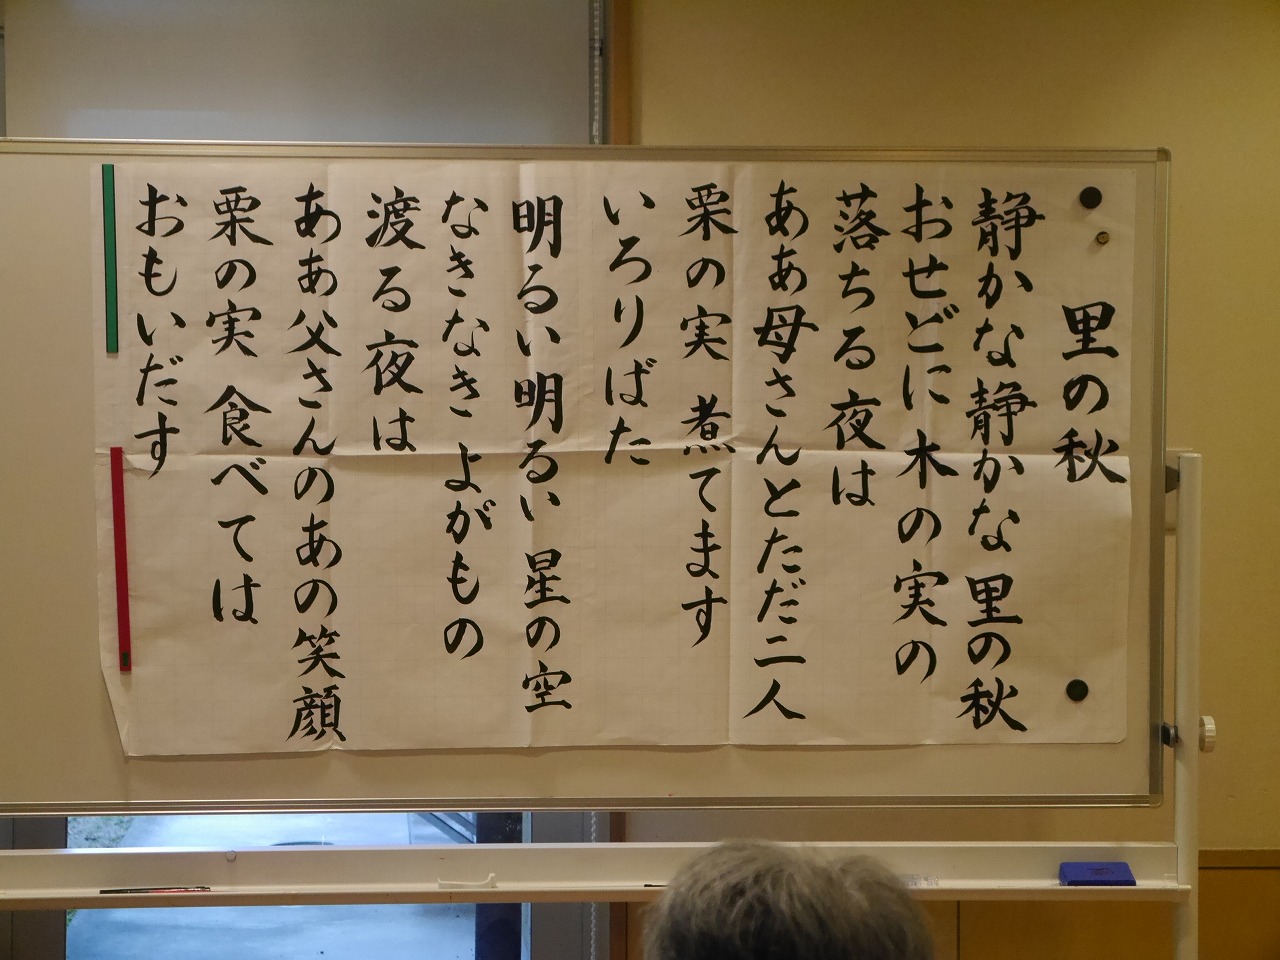 里の秋
静かな静かな 里の秋
おせどに木の実の
落ちる夜は
ああ母さんとただ二人
栗の実 煮てます
いろりばた
明るい明るい 星の空
なきなき よがもの
渡る夜は
ああ父さんのあの笑顔
栗の実 食べては
おもいだす